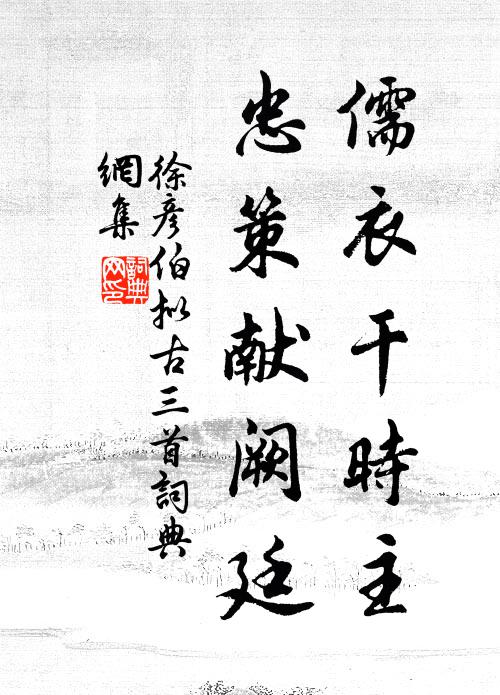 儒衣干時主
忠策献阙廷
徐彦伯拟古三首詞典
網集
詞典
网印